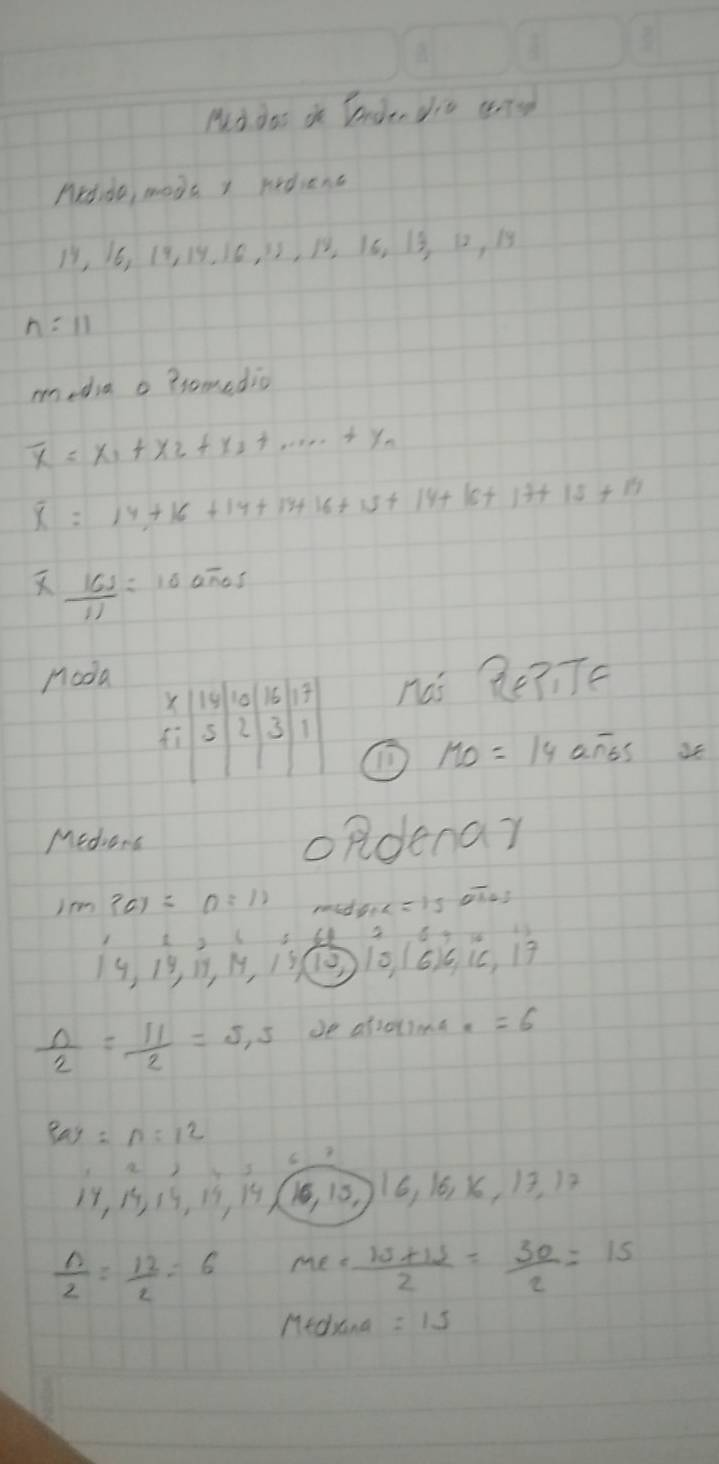 Medidas de Tendencia central
Medida, moda y mediana
14, 16, 14, 14, 16, 15, 14, 16, 17, 15, 14
n = 11
media o Promedio
x̄ = x1 + x2 + x3 + ..... + xn
x̄ = 14 + 16 + 14 + 14 + 16 + 15 + 14 + 16 + 17 + 15 + 14
x̄ 165/11 = 15 años
Moda
x | 14 | 15 | 16 | 17
fi | 5 | 2 | 3 | 1
Más REPITE
(11) MO = 14 años se
Mediana
ORdenar
Impar = n = 11 mediana = 15 años
1 2 3 4 5 6 7 8 9 10 11
14, 14, 14, 14, 14, 15, 15, 16, 16, 16, 17
n/2 = 11/2 = 5,5 se aproxima a = 6
Par = n = 12
1 2 3 4 5 6 7
14, 14, 14, 14, 14, 15, 15, 16, 16, 16, 17, 17
n/2 = 12/2 = 6 Me = 15+15/2 = 30/2 = 15
Mediana = 15